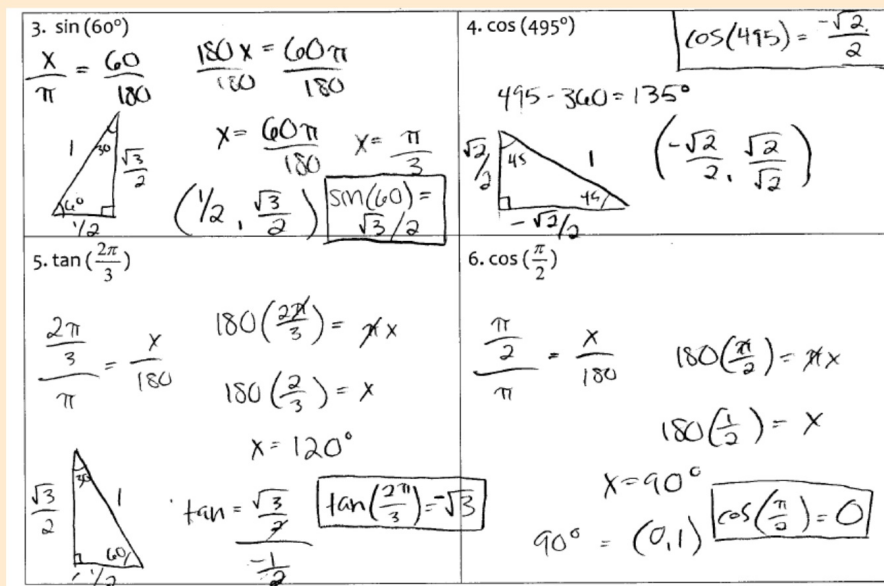 3. sin (60°)
x/π = 60/180
180x/180 = 60π/180
x = 60π/180
x = π/3
1
30
√3/2
60
1/2
(1/2, √3/2)
sin(60) = √3/2
4. cos (495°)
cos(495) = -√2/2
495 - 360 = 135°
√2/2
45
1
45
-√2/2
(-√2/2, √2/√2)
5. tan (2π/3)
2π/3/π = x/180
180(2π/3) = πx
180(2/3) = x
x = 120°
√3/2
30
1
60
-1/2
tan = √3/2/-1/2
tan(2π/3) = -√3
6. cos (π/2)
π/2/π = x/180
180(π/2) = πx
180(1/2) = x
x = 90°
90° = (0,1)
cos(π/2) = 0